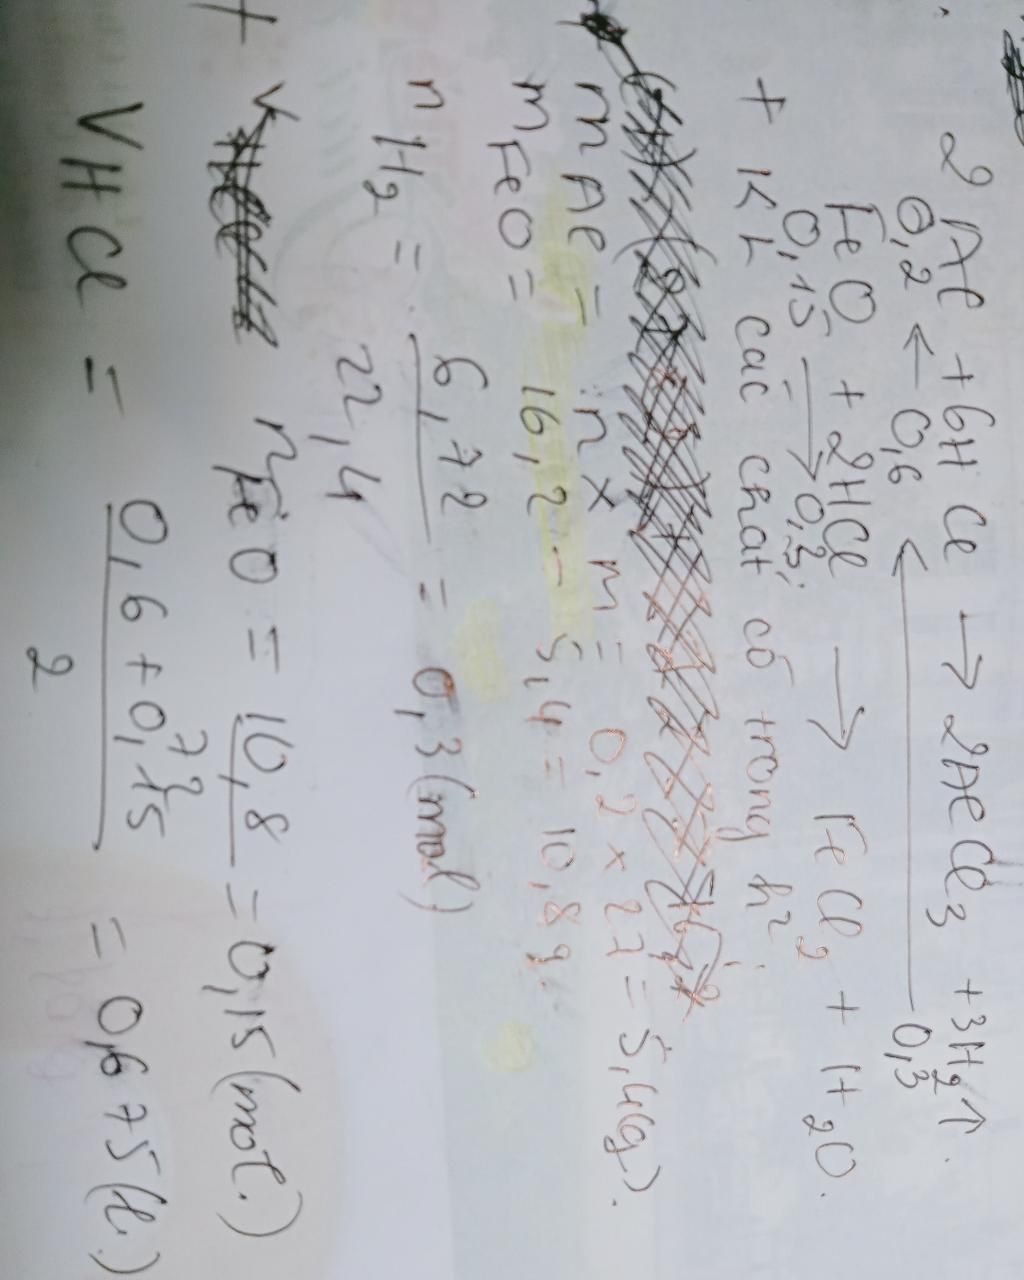 2 Al + 6H Cl → 2Al Cl3 + 3H2↑.
0,2 ← 0,6 ← 0,3
FeO + 2HCl → Fe Cl2 + H2O.
0,15 → 0,3
+ KL các chất có trong h²
m Al = n x m = 0,2 x 27 = 5,4(g).
m FeO = 16,2 - 5,4 = 10,8g.
n H2 = 6,72 / 22,4 = 0,3 (mol)
n FeO = 10,8 / = 0,15 (mol.)
V H Cl = 0,6 + 0,15 / 2 = 0,675 (l.)